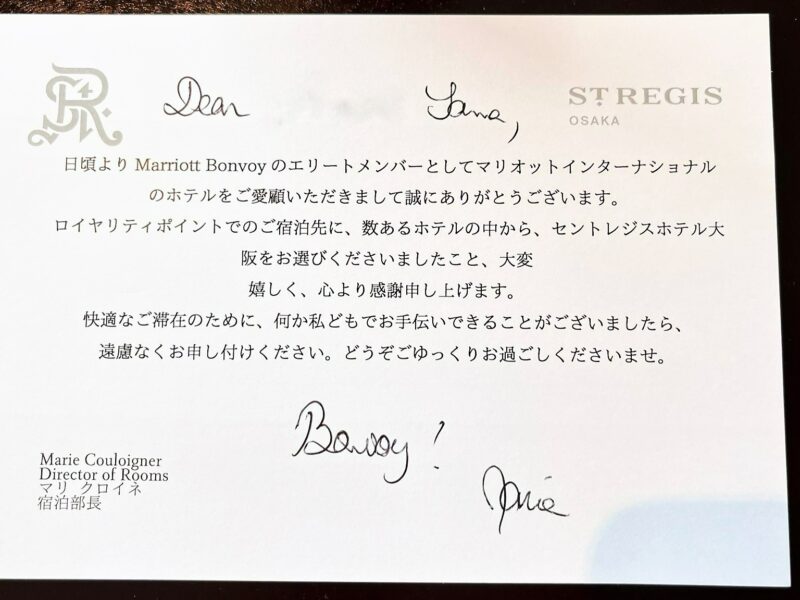 Dear Sama,
ST REGIS
OSAKA
日頃より Marriott Bonvoy のエリートメンバーとしてマリオットインターナショナル
のホテルをご愛顧いただきまして誠にありがとうございます。
ロイヤリティポイントでのご宿泊先に、数あるホテルの中から、セントレジスホテル大
阪をお選びくださいましたこと、大変
嬉しく、心より感謝申し上げます。
快適なご滞在のために、何か私どもでお手伝いできることがございましたら、
遠慮なくお申し付けください。どうぞごゆっくりお過ごしくださいませ。
Bonvoy!
Marie Couloigner
Director of Rooms
マリ クロイネ
宿泊部長
Marie